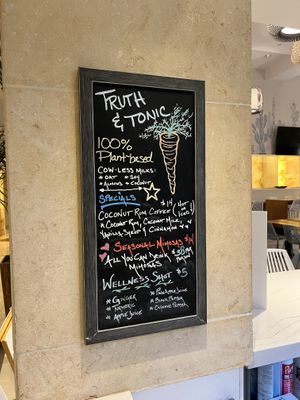 TRUTH
& TONIC
100%
Plant-based
COW-LESS MILKS:
* OAT * SOY
* ALMOND * COCONUT
SPECIALS
COCONUT RUM COFFEE $14
* COCONUT RUM, COCONUT MILK,
VANILLA SYRUP & CINNAMON
SEASONAL MIMOSAS $14
ALL YOU CAN DRINK
MIMOSAS
WELLNESS SHOT $5
* GINGER * PINEAPPLE JUICE
* TURMERIC * BLACK PEPPER
* APPLE JUICE * CAYENNE PEPPER